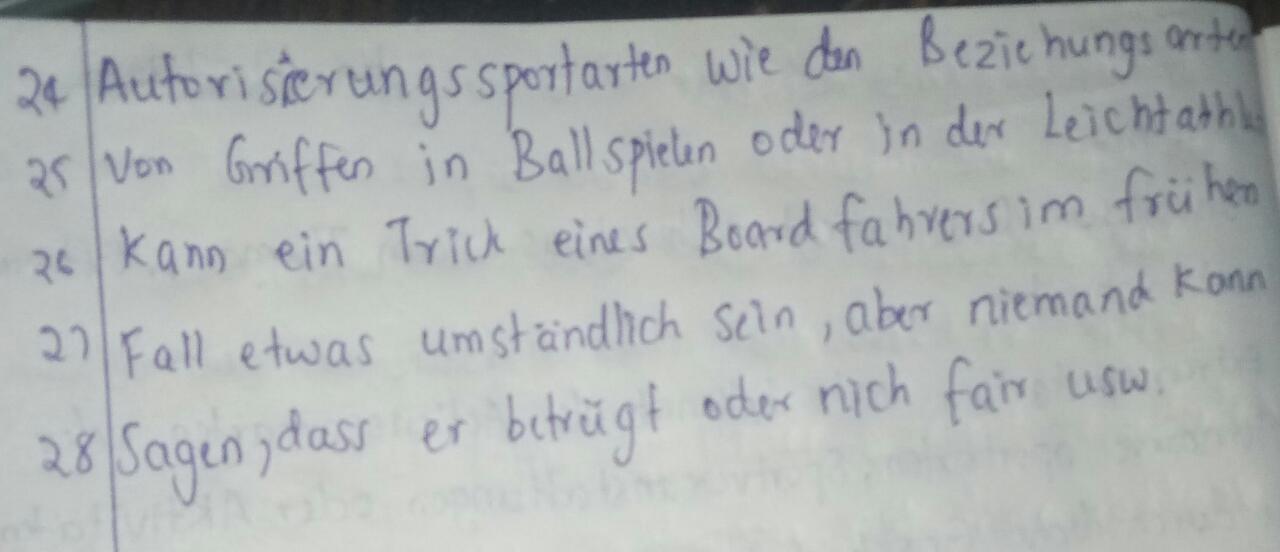 24 Autorisierungssportarten wie den Beziehungsarten
25 Von Griffen in Ballspielen oder in der Leichtathl
26 Kann ein Trick eines Boardfahrers im frühen
27 Fall etwas umständlich sein, aber niemand kann
28 Sagen, dass er betrügt oder nich fair usw.